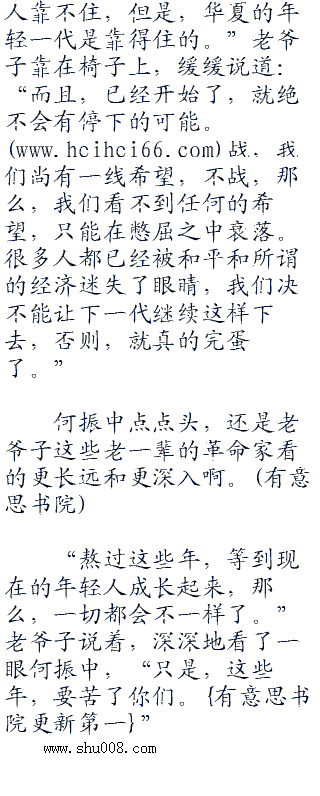 人靠不住，但是，华夏的年
轻一代是靠得住的。”老爷
子靠在椅子上，缓缓说道：
“而且，已经开始了，就绝
不会有停下的可能。
(www.hcihci66.com)战，我
们尚有一线希望，不战，那
么，我们看不到任何的希
望，只能在憋屈之中衰落。
很多人都已经被和平和所谓
的经济迷失了眼睛，我们决
不能让下一代继续这样下
去，否则，就真的完蛋
了。”
何振中点点头，还是老
爷子这些老一辈的革命家看
的更长远和更深入啊。(有意
思书院)
“熬过这些年，等到现
在的年轻人成长起来，那
么，一切都会不一样了。”
老爷子说着，深深地看了一
眼何振中，“只是，这些
年，要苦了你们。{有意思书
院更新第一}”
www.shu008.com